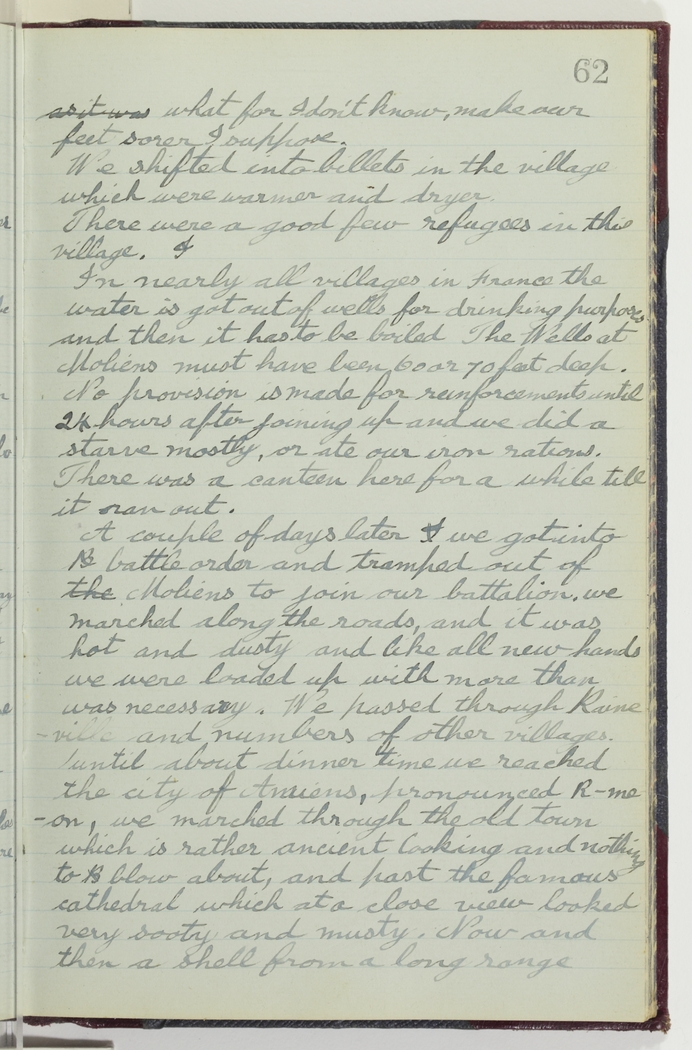 62
as it was what for I don't know, make our
feet sorer I suppose.
We shifted into billets in the village
which were warmer and dryer.
There were a good few refugees in this
village. I
In nearly all villages in France the
water is got out of wells for drinking purposes
and then it has to be boiled The Wells at
Moliens must have been 60 or 70 feet deep.
No provision is made for reinforcements until
24 hours after joining up and we did a
starve mostly, or ate our iron rations.
There was a canteen here for a while till
it ran out.
A couple of days later I we got into
B battle order and tramped out of
the Moliens to join our battalion. we
marched along the roads, and it was
hot and dusty and like all new hands
we were loaded up with more than
was necessary. We passed through Raine
-ville and numbers of other villages.
until about dinner time we reached
the city of Amiens, pronounced R-me
-on, we marched through the old town
which is rather ancient looking and nothing
to B blow about, and past the famous
cathedral which at a close view looked
very sooty and musty. Now and
then a shell from a long range